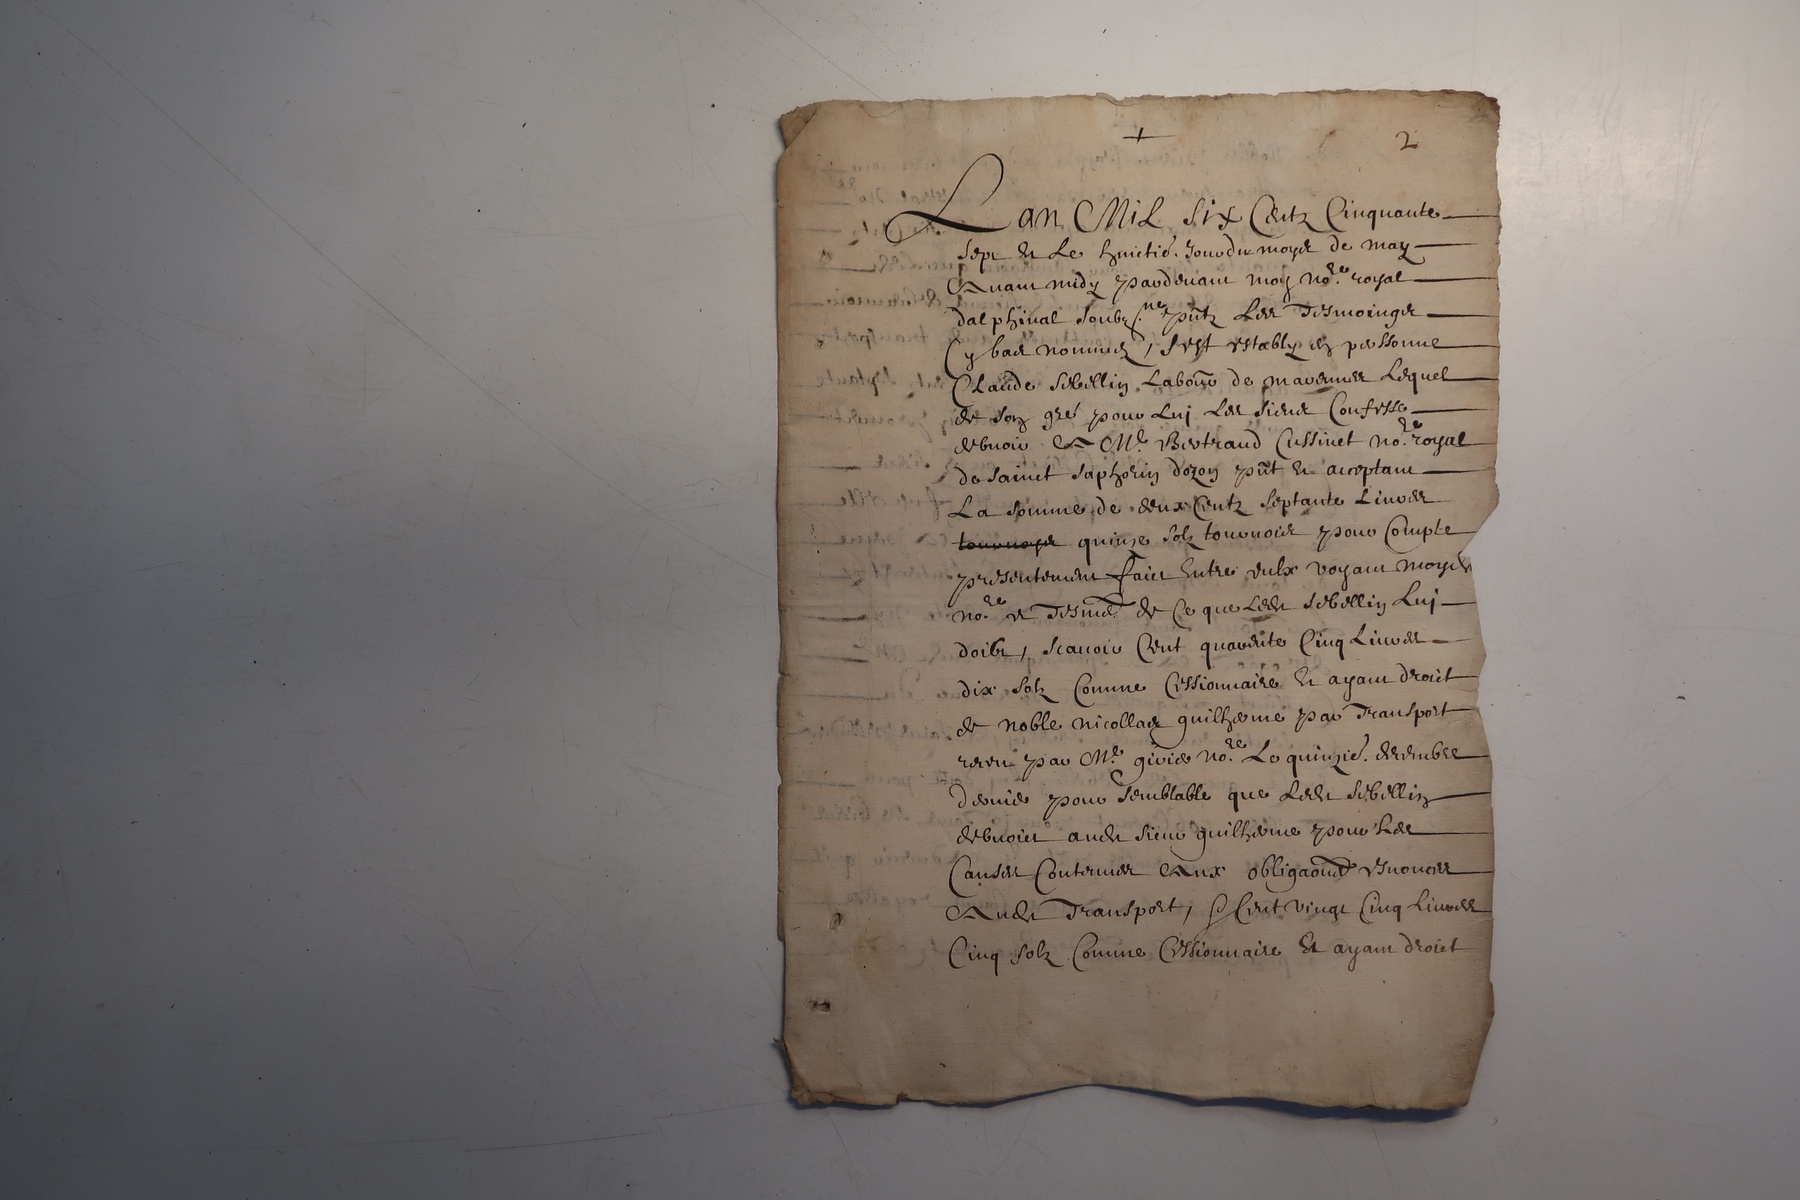 2
Lan Mil six Centz Cinquante
sept et le huictie. Jour du moys de may
Auant midy pardeuant moy no.re royal
dalphinal soubz.ne pntz les Tesmoings
Cy bas nommez, s'est estably en personne
Claude Sebellin Labour de marennes Lequel
de son gré pour Luj Les siens Confesse
debuoir A Me. Bertrand Cussinet no.re royal
de sainct saphorin dozon pnt et acceptant
La somme de deux Centz septante Liures
tournoys quinze solz tournois pour Compte
presentement faict Entre eulx voyant moyd
no.re et Tesmo de Ce que Ledt Sebellin Luj
doibt, scauoir Cent quarente Cinq Liures
dix solz Comme Cessionnaire Et ayant droict
de noble nicollas guilherme par Transport
receu par Me. no.re Le quinzie. decembre
dernier pour semblable que Ledt Sebellin
debuoit audt sieur guilherme pour Les
Causes Contenues Aux obligaons esnoncees
Audt Transport, Cent vingt Cinq Liures
Cinq solz Comme Cessionnaire Et ayant droict